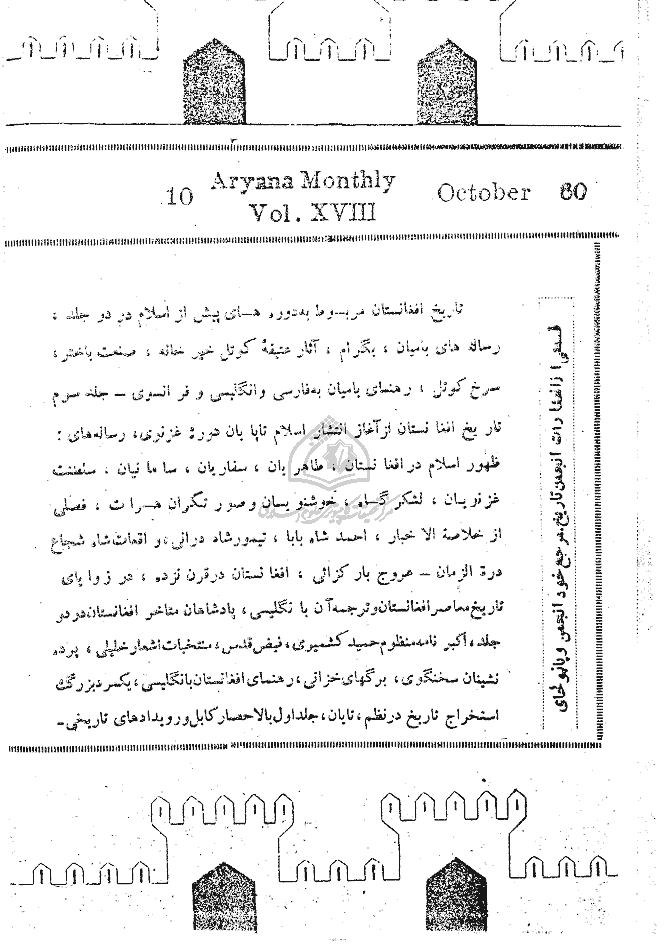 Aryana Monthly
10
Vol. XVIII
October 60
تاریخ افغانستان مربوط به دوره های پیش از اسلام در دو جلد ،
رساله های بامیان ، بگرام ، آثار عتیقهٔ کوتل خیر خانه ، صنعت باختر ،
سرخ کوتل ، رهنمای بامیان به فارسی و انگلیسی و فرانسوی – جلد سوم
تاریخ افغانستان از آغاز انتشار اسلام تا پایان دورهٔ غزنوی، رساله های :
ظهور اسلام در افغانستان ، طاهریان ، سفاریان ، سامانیان . سلطنت
غزنویان ، لشکرگاه ، خوشنویسان و صورتگران هرات ، فصلی
از خلاصة الاخبار ، احمد شاه بابا ، تیمورشاه درانی ، واقعات شاه شجاع
درة الزمان – عروج بارکزائی ، افغانستان در قرن نزده ، در زوایای
تاریخ معاصر افغانستان و ترجمه آن با نگلیسی ، پادشاهان متاخر افغانستان در دو
جلد ، اکبر نامه منظوم حمید کشمیری ، فیض قدس ، منتخبات اشعار خلیلی ، پرده
نشینان سخنگوی ، برگهای خزانی ، رهنمای افغانستان بانگلیسی ، یکمرد بزرگ
استخراج تاریخ در نظم ، تایان ، جلد اول بالاحصار کابل و رویدادهای تاریخی –
قسمتی از انتشارات انجمن تاریخ مرجع خود انجمن و